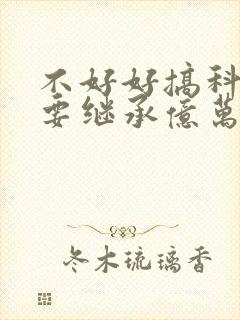 不好好搞科
要继承億萬
冬木琉璃香